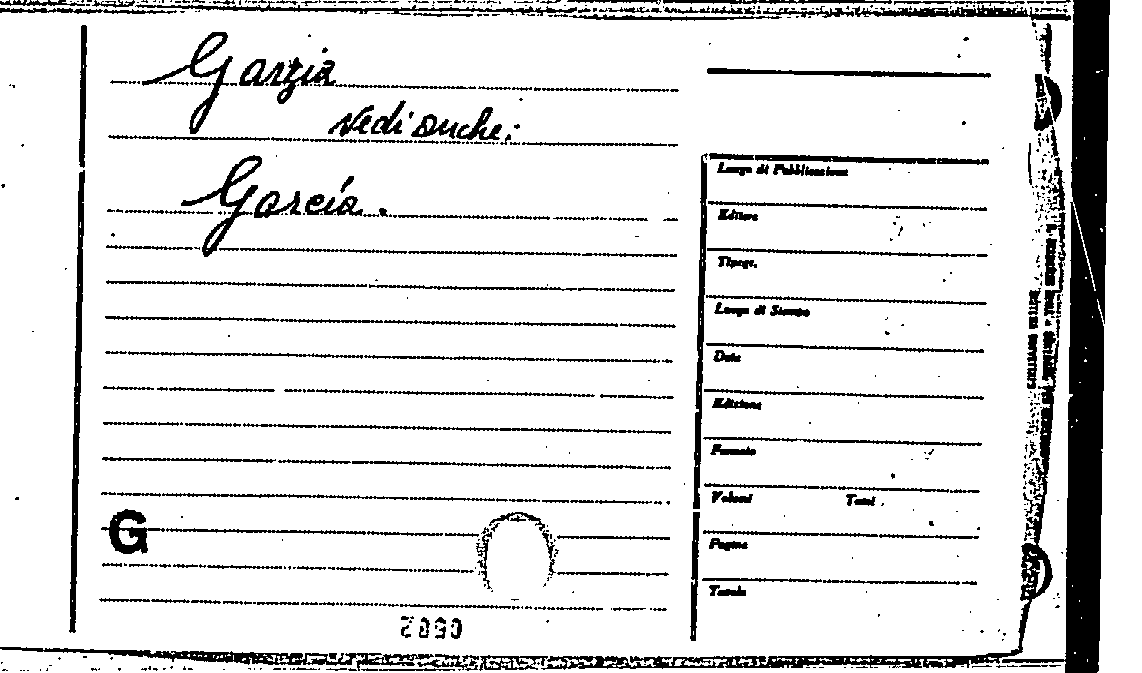 Garzia
Vedi anche:
García.
Luogo di Pubblicazione
Editore
Tipogr.
Luogo di Stampa
Data
Edizione
Formato
Volumi Tomi
Pagine
Tavole
G